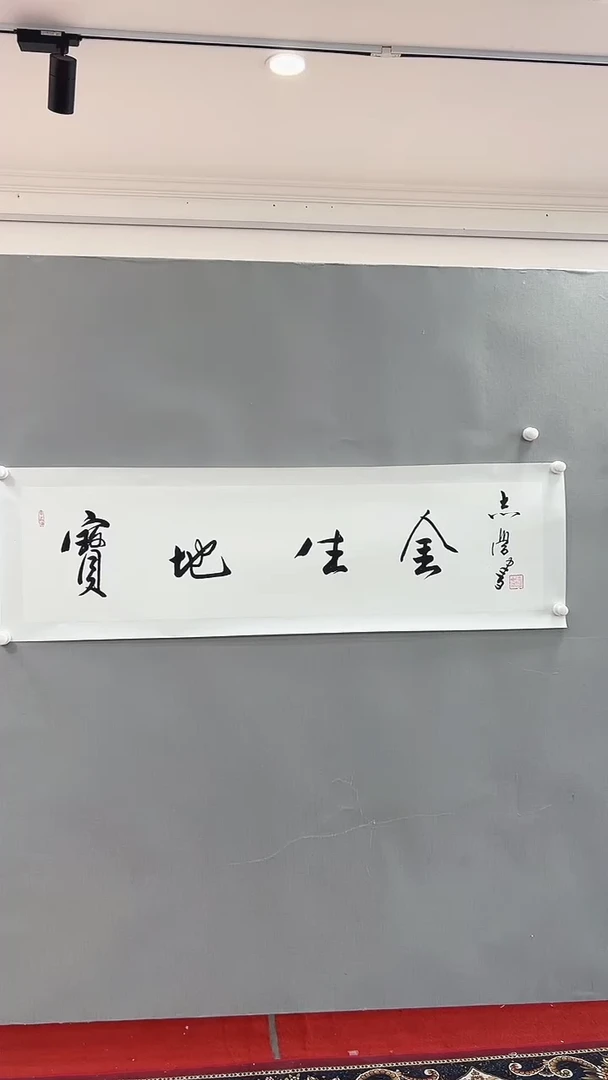 寶地生金
志